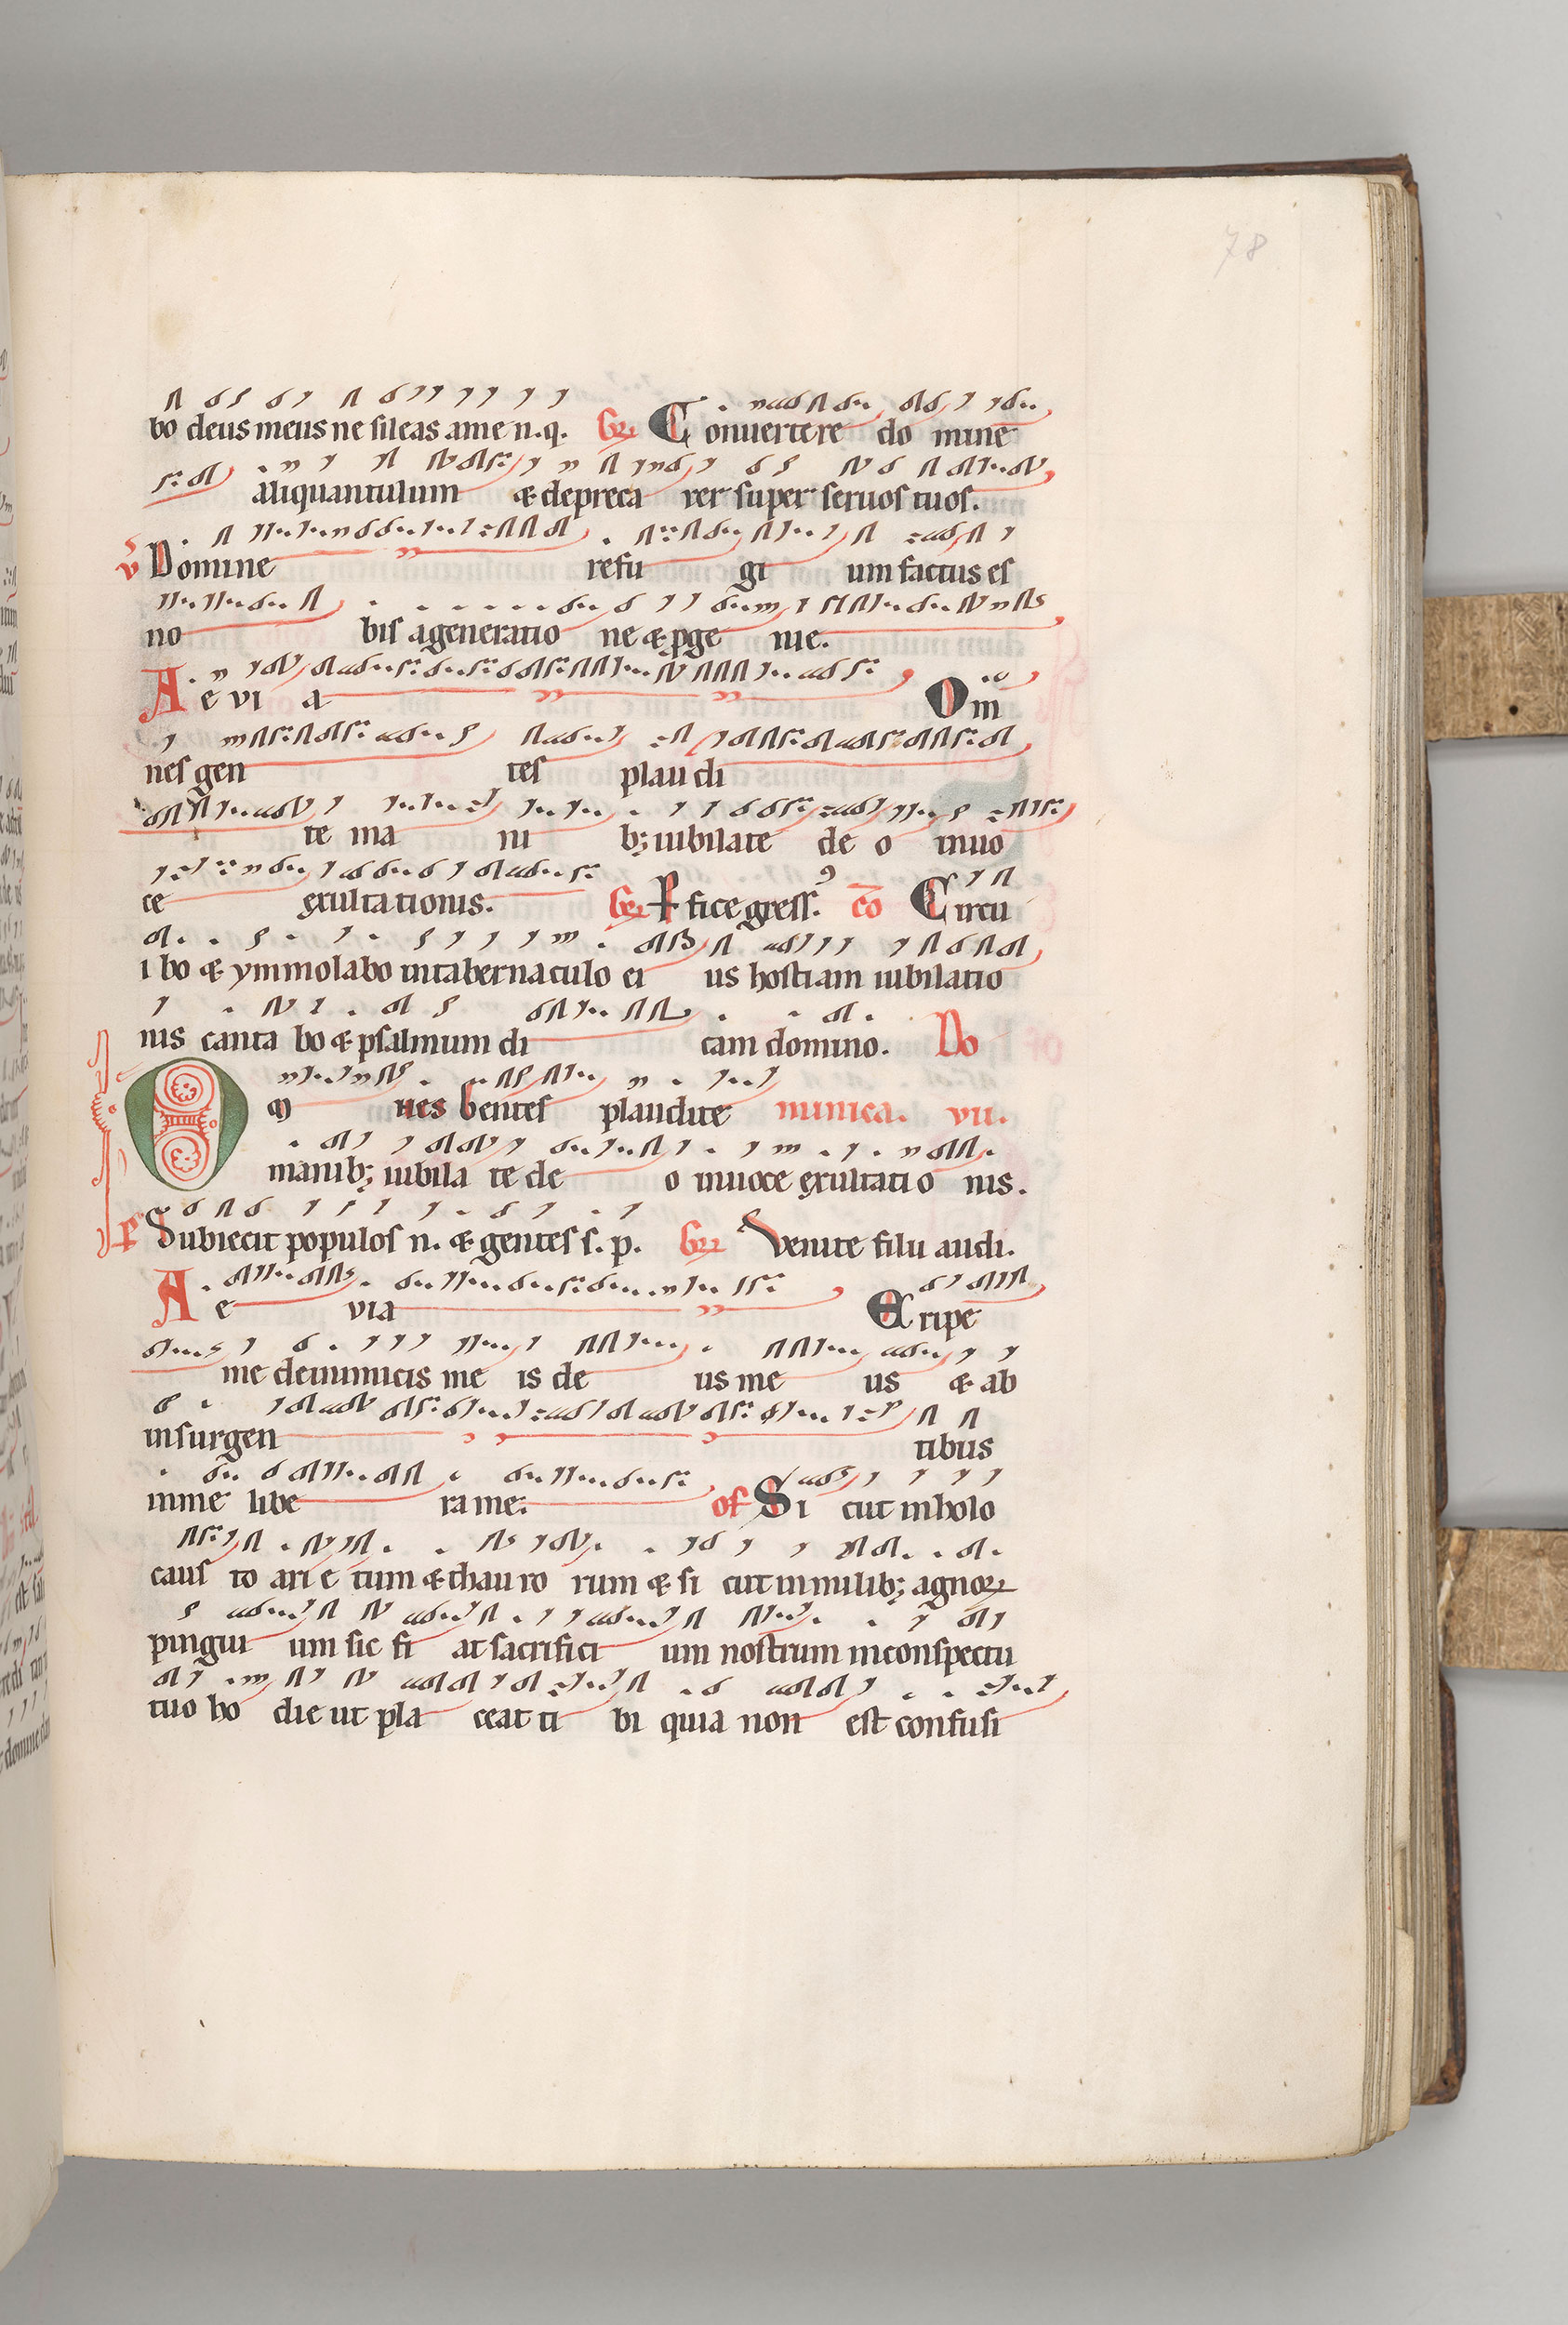 78
bo deus meus ne sileas a me n. q. Gr Conuertere do mine
aliquantulum & depreca rer super seruos tuos.
v Domine refu gi um factus es
no bis a generatio ne & pge nie.
A e vi a Om
nes gen tes plau di
te ma ni b; iubilate de o in uo
ce exultationis. Gr Pfice gress. co Circu
i bo & ymmolabo in tabernaculo ei us hostiam iubilatio
nis canta bo & psalmum di cam domino. Do
O m nes gentes plaudite minica. vii.
manib; iubila te de o in uoce exultati o nis.
Ps Subiecit populos n. & gentes s. p. Gr Venite filii audi.
A e via Eripe
me de inimicis me is de us me us & ab
insurgen tibus
in me libe ra me. of Si cut in holo
caus to ari e tum & thau ro rum & si cut in milib; agnoꝝ
pingui um sic fi at sacrifici um nostrum in conspectu
tuo ho die ut pla ceat ti bi quia non est confusi